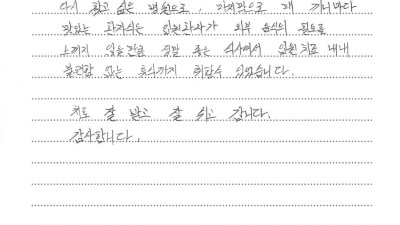 다시 찾고 싶은 병원으로, 마지막으로 매 끼니마다
맛있는 환자식은 입원환자가 외부 음식의 필요를
느끼지 않을만큼 정말 좋은 식사여서 입원치료 내내
불편함 없는 휴식까지 취할수 있었습니다.
치료 잘 받고 잘 쉬고 갑니다.
감사합니다.